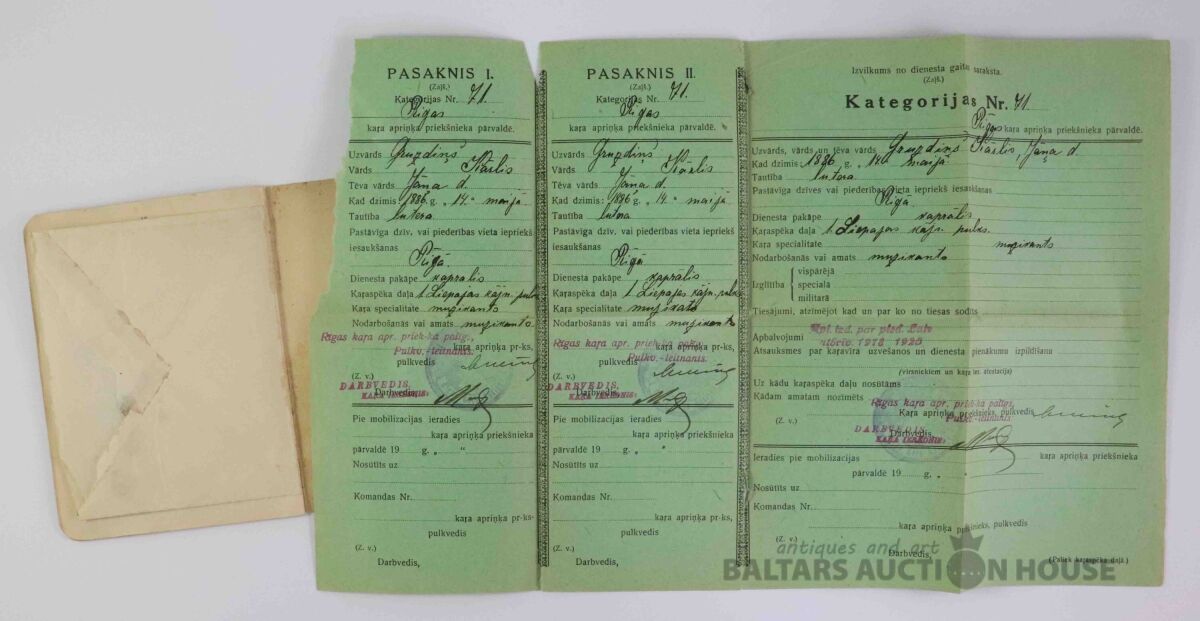 PASAKNIS I.
(Zaļš.)
Kategorijas Nr. 71.
Rīgas
kaŗa apriņķa priekšnieka pārvaldē.
Uzvārds Gruzdiņš
Vārds Kārlis
Tēva vārds Jāņa d.
Kad dzimis: 1886. g. „14.“ maijā
Tautība lutera
Pastāvīga dzīv. vai piederības vieta iepriekš
iesaukšanas
Rīgā
Dienesta pakāpe kaprālis
Kaŗaspēka daļa 1. Liepajas kājn. pulks
Kaŗa specialitate muzikants
Nodarbošanās vai amats muzikants
Rīgas kaŗa apr. priek-ka palīgs,
kaŗa apriņķa pr-ks,
Pulkv.-leitnants.
pulkvedis
(Z. v.)
DARBVEDIS,
Darbvedis,
KAŖA IERĒDNIS:
Pie mobilizacijas ieradies
kaŗa apriņķa priekšnieka
pārvaldē 19 g. „ “
Nosūtīts uz
Komandas Nr.
kaŗa apriņķa pr-ks,
pulkvedis
(Z. v.)
Darbvedis,
PASAKNIS II.
(Zaļš.)
Kategorijas Nr. 71.
Rīgas
kaŗa apriņķa priekšnieka pārvaldē.
Uzvārds Gruzdiņš
Vārds Kārlis
Tēva vārds Jāņa d.
Kad dzimis: 1886. g. „14.“ maijā
Tautība lutera
Pastāvīga dzīv. vai piederības vieta iepriekš
iesaukšanas
Rīgā
Dienesta pakāpe kaprālis
Kaŗaspēka daļa 1. Liepajas kājn. pulks
Kaŗa specialitate
Nodarbošanās vai amats muzikants
Rīgas kaŗa apr. priek-ka palīgs,
kaŗa apriņķa pr-ks,
Pulkv.-leitnants.
pulkvedis
(Z. v.)
DARBVEDIS,
Darbvedis,
KAŖA IERĒDNIS:
Pie mobilizacijas ieradies
kaŗa apriņķa priekšnieka
pārvaldē 19 g. „ “
Nosūtīts uz
Komandas Nr.
kaŗa apriņķa pr-ks,
pulkvedis
(Z. v.)
Darbvedis,
Izvilkums no dienesta gaitas saraksta.
(Zaļš.)
Kategorijas Nr. 71.
Rīgas kaŗa apriņķa priekšnieka pārvaldē.
Uzvārds, vārds un tēva vārds Gruzdiņš Kārlis, Jāņa d.
Kad dzimis: 1886 g. „14.“ maijā
Tautība lutera
Pastāvīga dzīves vai piederības vieta iepriekš iesaukšanas
Rīgā
Dienesta pakāpe kaprālis
Kaŗaspēka daļa 1. Liepajas kājn. pulks.
Kaŗa specialitate muzikants
Nodarbošanās vai amats muzikants
Izglītība
vispārējā
specialā
militarā
Tiesājumi, atzīmējot kad un par ko no tiesas sodīts
Apbalvojumi
1918 1920
Atsauksmes par kaŗavīra uzvešanos un dienesta pienākumu izpildīšanu
(virsniekiem un kaŗa ier. atestacija)
Uz kādu kaŗaspēka daļu nosūtāms
Kādam amatam nozīmēts
Rīgas kaŗa apr. priek-ka palīgs,
Kaŗa apriņķa priekšnieks, pulkvedis
(Z. v.)
Pulkv.-leitnants.
DARBVEDIS,
Darbvedis,
KAŖA IERĒDNIS:
Ieradies pie mobilizacijas kaŗa apriņķa priekšnieka
pārvaldē 19 g. „
Nosūtīts uz
Komandas Nr.
kaŗa apriņķa priekšnieks, pulkvedis
(Z. v.)
Darbvedis,
(Paliek kaŗaspēka daļā.)
antiques and art
BALTARS AUCTION HOUSE